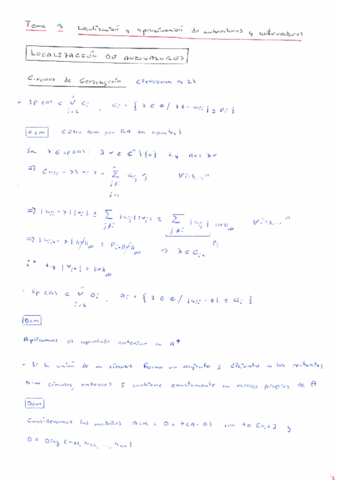 Tema 3 Localización y aproximación de autovalores y autovectores
LOCALIZACIÓN DE AUTOVALORES
Círculos de Gerschgorin (Teorema 1.2)
• Sp(A) ⊂ ∪ Ci, Ci = { z ∈ ℂ / |z - aii| ≤ Pi }
Dem (otra dem por en apuntes)
Sea λ ∈ Sp(A): ∃ v ∈ ℂⁿ \ {0} t.q. Av = λv
⇒ (aii - λ) vi = - Σ aij vj ∀i=1,...,n
⇒ |aii - λ| |vi| ≤ Σ |aij| |vj| ≤ Σ |aij| ||v||∞ ∀i=1,...,n
⇒ |ai*i* - λ| ||v||∞ ≤ Pi* ||v||∞ ⇒ λ ∈ Ci*
i* t.q. |vi*| = ||v||∞
• Sp(A) ⊂ ∪ Di, Di = { z ∈ ℂ / |aii - z| ≤ Qi }
Dem
Aplicamos el apartado anterior a A^t
• Si la unión de m círculos forma un conjunto S disjunto a los restantes
n-m círculos, entonces S contiene exactamente m valores propios de A
Dem
Consideramos las matrices A(t) = D + t(A - D) con t ∈ [0,1] y
D = Diag (a11, a22, ..., ann)